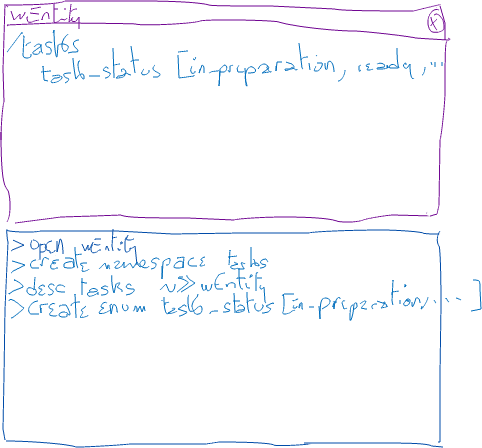 wEntity
(x)
/tasks
task_status [in_preparation, ready, ...
> open wEntity
> create namespace tasks
> desc tasks v>> wEntity
> create enum task_status [in_preparation, ... ]